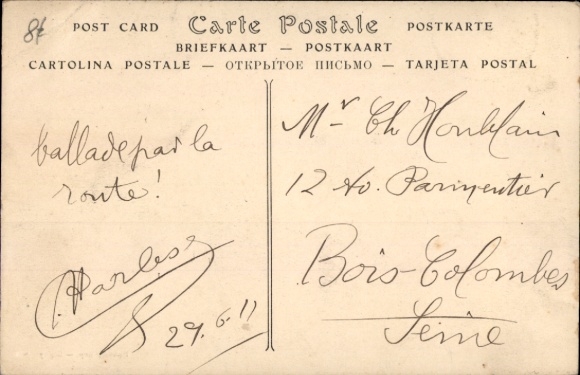 8f
POST CARD Carte Postale POSTKARTE
BRIEFKAART — POSTKAART
CARTOLINA POSTALE — ОТКРЫТОЕ ПИСЬМО — TARJETA POSTAL
ballade par la
route!
29.6.11
Mr Ch Houblain
12 Av. Parmentier
Bois-Colombes
Seine